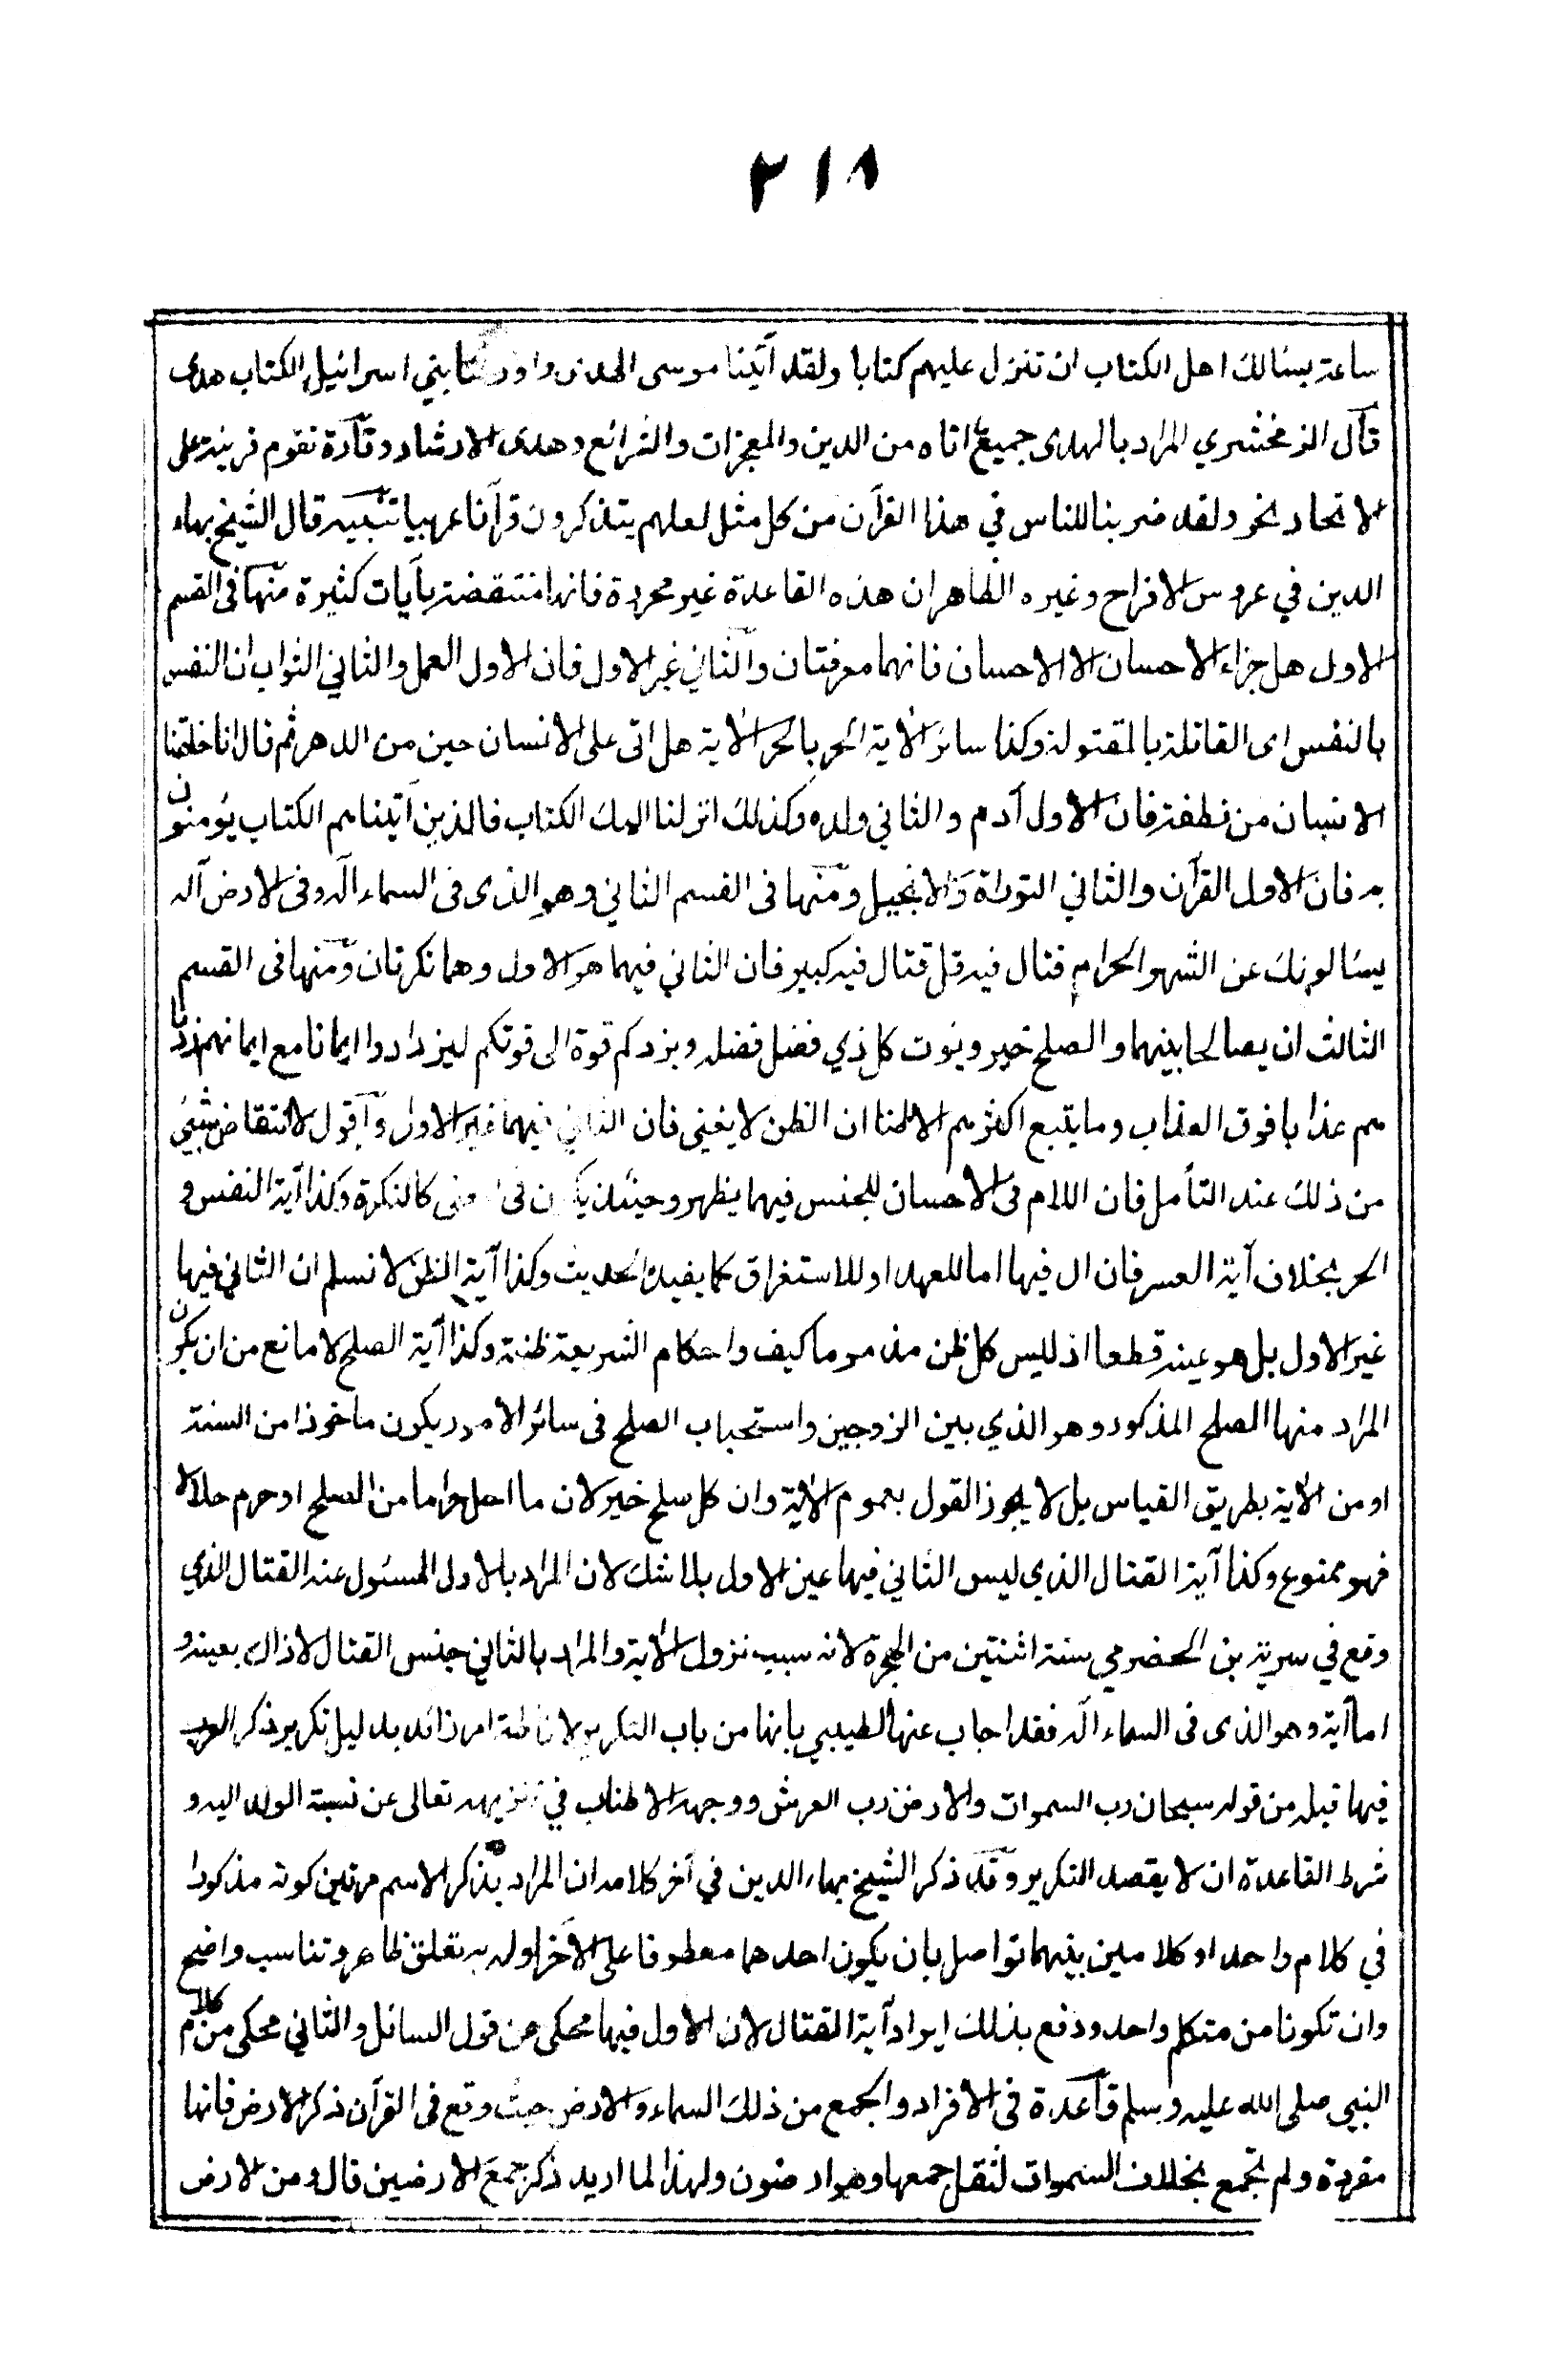 ٢١٨
ساعة يسئالك اهل الكتاب ان تنزل عليهم كتابا ولقد آتينا موسى الهدى واورثنا بني اسرائيل الكتاب هدى
قال الزمخشري المراد بالهدى جميع ما اتاه من الدين والمعجزات والشرائع وهدى الارشاد وتارة تقوم قرينة على
الاتحاد نحو ولقد ضربنا للناس في هذا القرآن من كل مثل لعلهم يتذكرون قرآنا عربيا تنبيه قال الشيخ بهاء
الدين في عروس الافراح وغيره الظاهر ان هذه القاعدة غير محررة فانها منتقضة بآيات كثيرة منها في القسم
الاول هل جزاء الاحسان الا الاحسان فانهما معرفتان والثاني غير الاول فان الاول العمل والثاني الثواب ان النفس
بالنفس اى القاتلة بالمقتولة وكذا سائر الآية الحر بالحر الآية هل اتى على الانسان حين من الدهر ثم قال انا خلقنا
الانسان من نطفة فان الاول آدم والثاني ولده وكذلك انزلنا اليك الكتاب فالذين آتيناهم الكتاب يؤمنون
به فان الاول القرآن والثاني التوراة والانجيل ومنها فى القسم الثاني وهو الذى فى السماء اله وفى الارض اله
يسئالونك عن الشهر الحرام قتال فيه قل قتال فيه كبير فان الثاني فيهما هو الاول وهما نكرتان ومنها فى القسم
الثالث ان يصالحا بينهما والصلح خير ويؤت كل ذي فضل فضله ويزدكم قوة الى قوتكم ليزدادوا ايمانا مع ايمانهم زدنا
هم عذابا فوق العذاب وما يتبع اكثرهم الا ظنا ان الظن لا يغنى فان الثاني فيهما غير الاول واقول لا انتقاض بشيئ
من ذلك عند التأمل فان اللام فى الاحسان للجنس فيما يظهر وحينئذ يكون فى المعنى كالنكرة وكذا آية النفس و
الحر بخلاف آية العسر فان ال فيها اما للعهد او للاستغراق كما يفيده الحديث وكذا آية الظن لا نسلم ان الثاني فيها
غير الاول بل هو عينه قطعا اذ ليس كل ظن مذموما كيف واحكام الشريعة ظنية وكذا آية الصلح لا مانع من ان يكون
المراد منها الصلح المذكور وهو الذي بين الزوجين واستحباب الصلح فى سائر الامور يكون ماخوذا من السنة
او من الآية بطريق القياس بل لا يجوز القول بعموم الآية وان كل صلح خير لان ما احل حراما من الصلح او حرم حلالا
فهو ممنوع وكذا آية القتال الذي ليس الثاني فيها عين الاول بلا شك لان المراد بالاول المسئول عنه القتال الذي
وقع في سرية بن الحضرمي سنة اثنتين من الهجرة لانه سبب نزول الآية والمراد بالثاني جنس القتال لا ذاك بعينه و
اما آية وهو الذى فى السماء اله فقد اجاب عنها الطيبي بانها من باب التكرير لافاطة امر زائد بدليل تكرير ذكر الرب
فيها قبله من قوله سبحان رب السموات والارض رب العرش ووجهه الاطناب في تنزيهه تعالى عن نسبة الولد اليه و
شرط القاعدة ان لا يقصد التكرير وقد ذكر الشيخ بهاء الدين في آخر كلامه ان المراد بذكر الاسم مرتين كونه مذكورا
في كلام واحد او كلامين بينهما تواصل بان يكون احدهما معطوفا على الآخر او له به تعلق ظاهر وتناسب واضح
وان تكونا من متكلم واحد ودفع بذلك ايراد آية القتال لان الاول فيها محكى عن قول السائل والثاني محكى من كلام
النبي صلى الله عليه وسلم قاعدة فى الافراد والجمع من ذلك السماء والارض حيث وقع فى القرآن ذكر الارض فانها
مفردة ولم تجمع بخلاف السموات لثقل جمعها وهو ارضون ولهذا لما اريد ذكر جمع الارضين قال ومن الارض